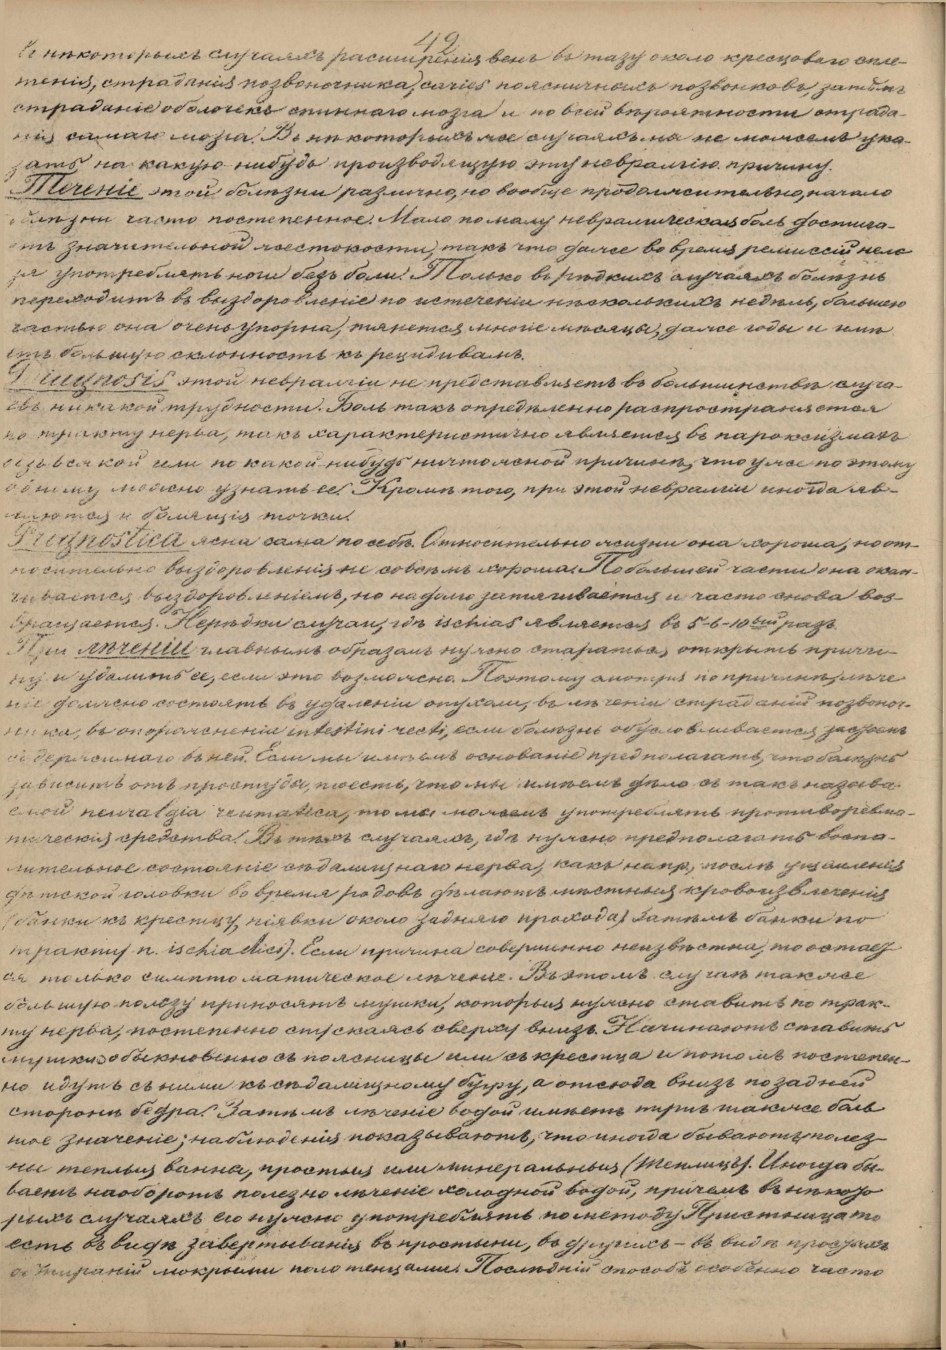 42
въ нѣкоторыхъ случаяхъ расширенія венъ въ тазу около кресцоваго спле-
тенія, страданія позвоночника, caries поясничныхъ позвонковъ, затѣмъ
страданіе оболочекъ спиннаго мозга и по всей вѣроятности страда-
нія самаго мозга. Въ нѣкоторыхъ же случаяхъ мы не можемъ ука-
зать на какую нибудь производящую эту невралгію причину.
Теченіе этой болѣзни различно, но вообще продолжительно, начало
болѣзни часто постепенное. Мало по малу невралгическая боль достига-
етъ значительной жестокости, такъ что даже во время ремиссій нель
зя употреблять ноги безъ боли. Только въ рѣдкихъ случаяхъ болѣзнь
переходитъ въ выздоровленіе по истеченіи нѣсколькихъ недѣль, большею
частью она очень упорна, тянется многіе мѣсяцы, даже годы и имѣ
етъ большую склонность къ рецидивамъ.
Diagnosis этой невралгіи не представляетъ въ большинствѣ случа-
евъ никакой трудности. Боль такъ опредѣленно распространяется
по тракту нерва, такъ характеристично является въ пароксизмахъ
безъ всякой или по какой нибудь ничтожной причинѣ, что уже по этому
одному можно узнать ее. Кромѣ того, при этой невралгіи иногда яв-
ляются и болящія точки.
Prognostica ясна сама по себѣ. Относительно жизни она хороша, но от-
носительно выздоровленія не совсѣмъ хороша. По большей части она окан-
чивается выздоровленіемъ, но надолго затягивается и часто снова воз-
вращается. Нерѣдки случаи, гдѣ ischias является въ 5-6-10ый разъ.
При лѣченіи главнымъ образомъ нужно стараться открыть причи-
ну и удалить ее, если это возможно. Поэтому смотря по причинѣ, лѣче
ніе должно состоять въ удаленіи опухоли, въ лѣченіи страданій позвоноч-
ника, въ опорожненіи intestini recti, если болѣзнь обусловливается
содержимаго въ ней. Если мы имѣемъ основаніе предполагать, что болѣзнь
зависитъ отъ простуды, то есть, что мы имѣемъ дѣло съ такъ называ
емой nevralgia reumatica, то мы можемъ употреблять противоревма-
тическія средства. Въ тѣхъ случаяхъ, гдѣ нужно предполагать воспа-
лительное состояніе сѣдалищнаго нерва, какъ напр, послѣ ущемленія
дѣтской головки во время родовъ дѣлаютъ мѣстныя кровоизвлеченія
(банки къ крестцу, піявки около задняго прохода) затѣмъ банки по
тракту n. ischiadici). Если причина совершенно неизвѣстна, то остает
ся только симптоматическое лѣченіе. Въ этомъ случаѣ также
большую пользу приносятъ мушки, которыя нужно ставить по трак-
ту нерва, постепенно спускаясь сверху внизъ. Начинаютъ ставить
мушки обыкновенно съ поясницы или съ крестца и потомъ постепен-
но идутъ съ ними къ сѣдалищному бугру, а отсюда внизъ по задней
сторонѣ бедра. Затѣмъ лѣченіе водой имѣетъ тутъ также боль
шое значеніе; наблюденія показываютъ, что иногда бываютъ полез-
ны теплыя ванны, простыя или минеральныя (Теплицъ). Иногда бы-
ваетъ наоборотъ полезно лѣченіе холодной водой, причемъ въ нѣкото
рыхъ случаяхъ его нужно употреблять по методу Пристница то
есть въ видѣ завертыванія въ простыни, въ другихъ - въ видѣ простыхъ
обтираній мокрыми полотенцами. Послѣдній способъ особенно часто